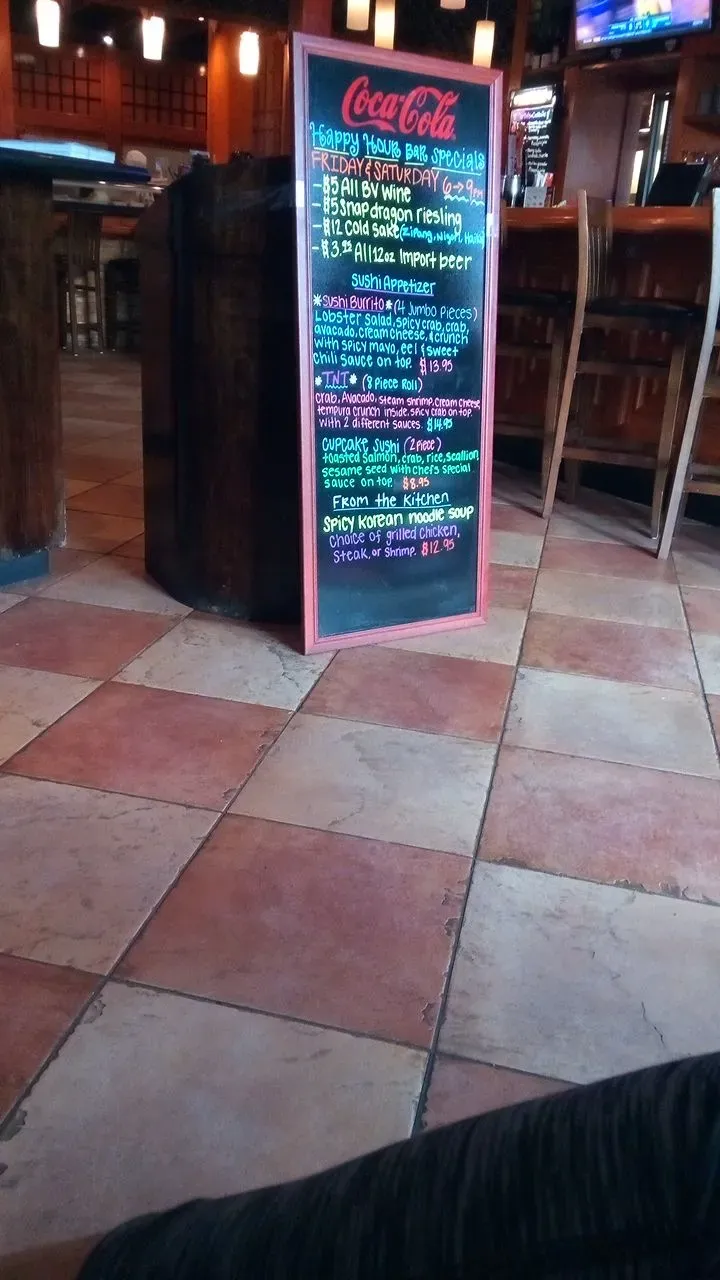 Coca-Cola
Happy Hour Bar Specials
FRIDAY & SATURDAY 6→9pm
- $5 All BV Wine
- $5 Snapdragon riesling
- $12 Cold sake (Zipang, Nigori,
- $3.75 All 12oz Import beer
Sushi Appetizer
*Sushi Burrito* (4 Jumbo Pieces)
Lobster salad, spicy crab, crab,
avacado, cream cheese, & crunch
with spicy mayo, eel & sweet
chili sauce on top. $13.95
*TNT* (8 Piece Roll)
crab, Avocado, steam shrimp, cream cheese,
tempura crunch inside. spicy crab on top.
with 2 different sauces. $14.95
Cupcake Sushi (2 Piece)
toasted salmon, crab, rice, scallion,
sesame seed with chefs special
sauce on top $8.95
From the Kitchen
Spicy Korean noodle soup
choice of grilled chicken,
steak, or shrimp. $12.95